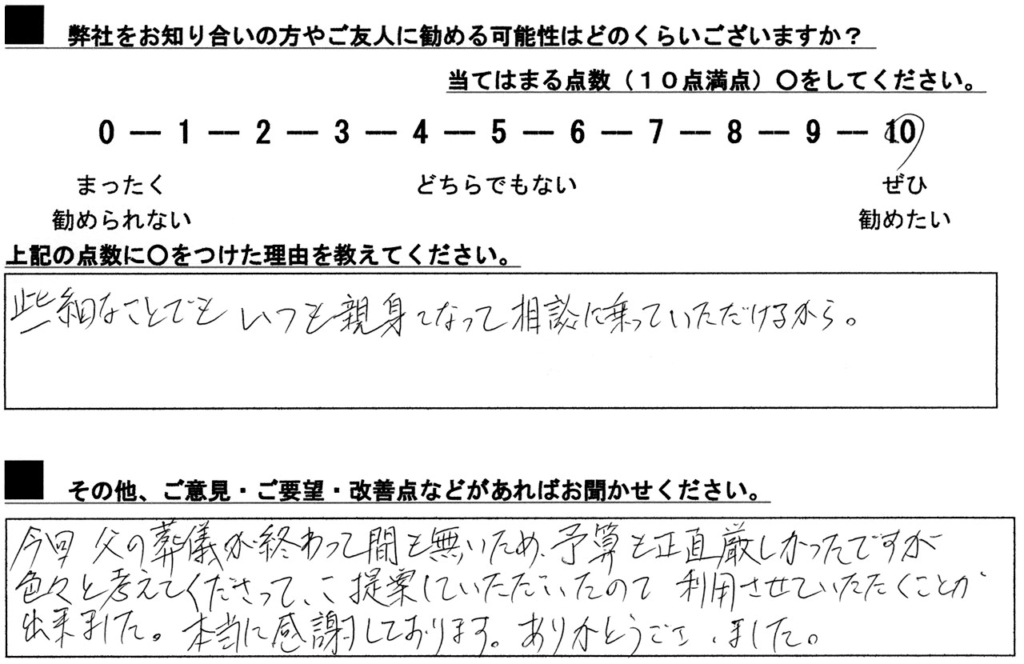 弊社をお知り合いの方やご友人に勧める可能性はどのくらいございますか？
当てはまる点数（１０点満点）〇をしてください。
0 ― 1 ― 2 ― 3 ― 4 ― 5 ― 6 ― 7 ― 8 ― 9 ― 10
まったく どちらでもない ぜひ
勧められない 勧めたい
上記の点数に〇をつけた理由を教えてください。
些細なことでも いつも親身になって相談に乗っていただけるから。
その他、ご意見・ご要望・改善点などがあればお聞かせください。
今回 父の葬儀が終わって間も無いため、予算も正直厳しかったですが
色々と考えてくださって、ご提案していただいたので 利用させていただくことが
出来ました。本当に感謝しております。ありがとうございました。